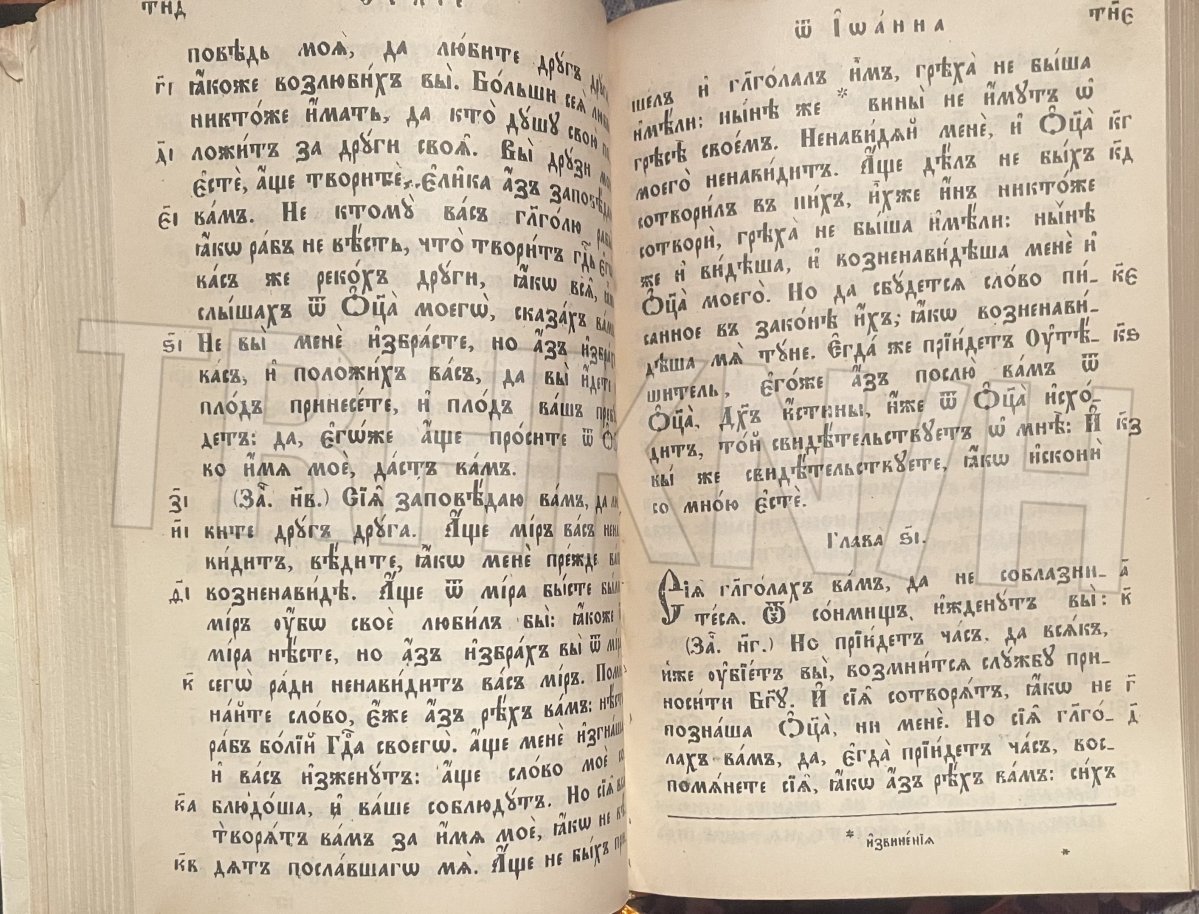 тн҃д
повѣдь моѧ̀, да лю́бите дрꙋ́гъ
г҃і ꙗ҆́коже возлюби́хъ вы̀. Бо́льши сеѧ̀
никто́же и҆́мать, да кто̀ дꙋ́шꙋ свою̀
д҃і ложи́тъ за дрꙋ́ги своѧ̑. Вы̀ дрꙋ́зи
є҆стѐ, а҆́ще творитѐ, є҆ли̑ка а҆́зъ
є҃і ва́мъ. Не ктомꙋ̀ ва́съ гл҃го́лю
ꙗ҆́кѡ ра́бъ не вѣ́сть, что̀ твори́тъ гд҇ь
ва́съ же реко́хъ дрꙋ́ги, ꙗ҆́кѡ всѧ̑,
слы́шахъ ѿ Ѻ҆ц҃а̀ моегѡ̀, сказа́хъ
ѕ҃і Не вы̀ менѐ и҆збра́сте, но а҆́зъ
ва́съ, и҆ положи́хъ ва́съ, да вы̀
пло́дъ принесе́те, и҆ пло́дъ ва́шъ
детъ: да, є҆гѡ́же а҆́ще про́сите ѿ
во и҆́мѧ моѐ, да́стъ ва́мъ.
з҃і (За҄. н҃в.) Сїѧ̑ заповѣ́даю ва́мъ, да
и҃і бите дрꙋ́гъ дрꙋ́га. А҆́ще мі́ръ ва́съ
ви́дитъ, вѣ́дите, ꙗ҆́кѡ менѐ пре́жде
ѳ҃і возненави́дѣ. А҆́ще ѿ мі́ра бы́сте
мі́ръ ᲂу҆́бѡ своѐ люби́лъ бы̀: ꙗ҆́коже
мі́ра нѣ́сте, но а҆́зъ и҆збра́хъ вы̀ ѿ
к҃ сегѡ̀ ра́ди ненави́дитъ ва́съ мі́ръ.
на́йте сло́во, є҆́же а҆́зъ рѣ́хъ ва́мъ:
ра́бъ бо́лїй Гд҇а своегѡ̀. а҆́ще менѐ
и҆ ва́съ и҆зженꙋ́тъ: а҆́ще сло́во моѐ
к҃а блюдо́ша, и҆ ва́ше соблюдꙋ́тъ. Но сїѧ̑
творѧ́тъ ва́мъ за и҆́мѧ моѐ, ꙗ҆́кѡ не
к҃в дѧ́тъ посла́вшагѡ мѧ̀. А҆́ще не бы́хъ
ѿ І҆ѡа́нна тн҃є
ше́лъ и҆ гл҃го́лалъ и҆̀мъ, грѣха̀ не бы́ша
и҆мѣ́ли: ны́нѣ же * вины̀ не и҆́мꙋтъ ѡ҆
грѣсѣ̀ свое́мъ. Ненави́дѧй менѐ, и҆ Ѻ҆ц҃а̀ к҃г
моего̀ ненави́дитъ. А҆́ще дѣ́лъ не бы́хъ к҃д
сотвори́лъ въ ни́хъ, и҆́хже и҆́нъ никто́же
сотворѝ, грѣха̀ не бы́ша и҆мѣ́ли: ны́нѣ
же и҆ ви́дѣша, и҆ возненави́дѣша менѐ и҆
Ѻ҆ц҃а̀ моего̀. Но да сбꙋ́детсѧ сло́во пи́- к҃є
санное въ зако́нѣ и҆́хъ: ꙗ҆́кѡ возненави́-
дѣша мѧ̀ тꙋ́не. Є҆гда́ же прїи́детъ Оу҆тѣ́- к҃ѕ
шитель, є҆го́же а҆́зъ послю̀ ва́мъ ѿ
Ѻ҆ц҃а̀, Дх҃ъ и҆́стины, и҆́же ѿ Ѻ҆ц҃а̀ и҆схо́-
дитъ, то́й свидѣ́тельствꙋетъ ѡ҆ мнѣ̀: И҆ к҃з
вы́ же свидѣ́тельствꙋете, ꙗ҆́кѡ и҆скони̂
со мно́ю є҆стѐ.
Глава̀ ѕ҃і.
Сїѧ̑ гл҃го́лахъ ва́мъ, да не соблазни- а҃
те́сѧ. Ѿ со́нмищъ и҆жденꙋ́тъ вы̀: в҃
(За҄. н҃г.) Но прїи́детъ ча́съ, да всѧ́къ,
и҆́же ᲂу҆бїе́тъ вы̀, возмни́тсѧ слꙋ́жбꙋ при-
носи́ти Бг҃ꙋ. И҆ сїѧ̑ сотворѧ́тъ, ꙗ҆́кѡ не г҃
позна́ша Ѻ҆ц҃а̀, ни менѐ. Но сїѧ̑ гл҃го́- д҃
лахъ ва́мъ, да, є҆гда̀ прїи́детъ ча́съ, вос-
помѧне́те сїѧ̑, ꙗ҆́кѡ а҆́зъ рѣ́хъ ва́мъ: си́хъ
* и҆звине́нїѧ
*
TRHKNVH